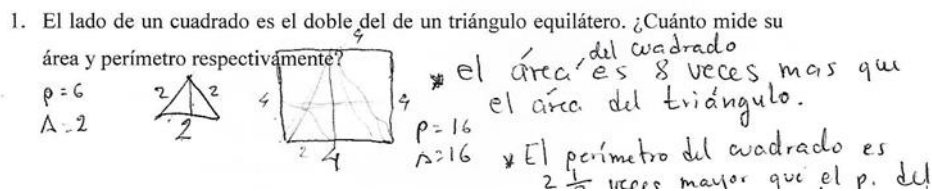 1. El lado de un cuadrado es el doble del de un triángulo equilátero. ¿Cuánto mide su
área y perímetro respectivamente?
P=6
A=2
2
2
2
4
4
4
2
4
P=16
A=16
* el área del cuadrado es 8 veces mas que
el área del triángulo.
* El perímetro del cuadrado es
2 veces mayor que el p. del